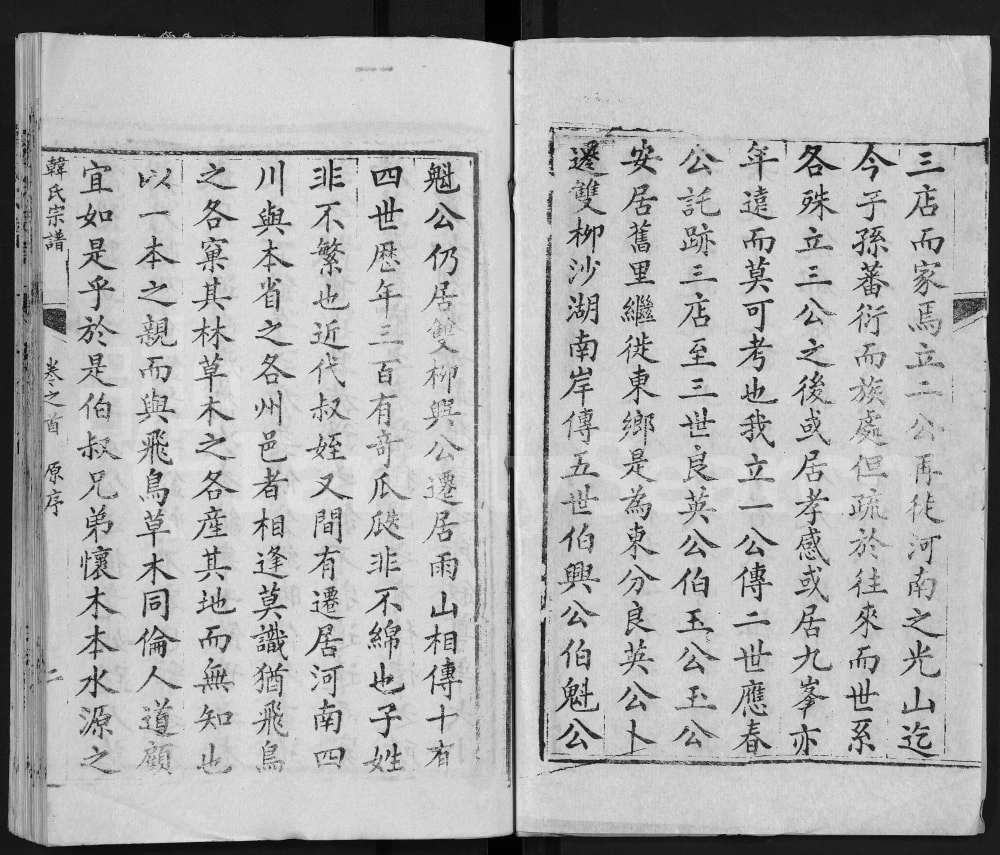 三店而家焉立二公再徙河南之光山迄
今子孫蕃衍而族處但疏於往來而世系
各殊立三公之後或居孝感或居九峯亦
年遠而莫可考也我立一公傳二世應春
公託跡三店至三世良英公伯玉公玉公
安居舊里繼徙東鄉是為東分良英公卜
遷雙柳沙湖南岸傳五世伯興公伯魁公
魁公仍居雙柳興公遷居雨山相傳十有
四世歷年三百有奇瓜瓞非不綿也子姓
非不繁也近代叔姪又間有遷居河南四
川與本省之各州邑者相逢莫識猶飛鳥
之各窠其林草木之各産其地而無知也
以一本之親而與飛鳥草木同倫人道顧
宜如是乎於是伯叔兄弟懷木本水源之
韓氏宗譜 卷之首 原序 二